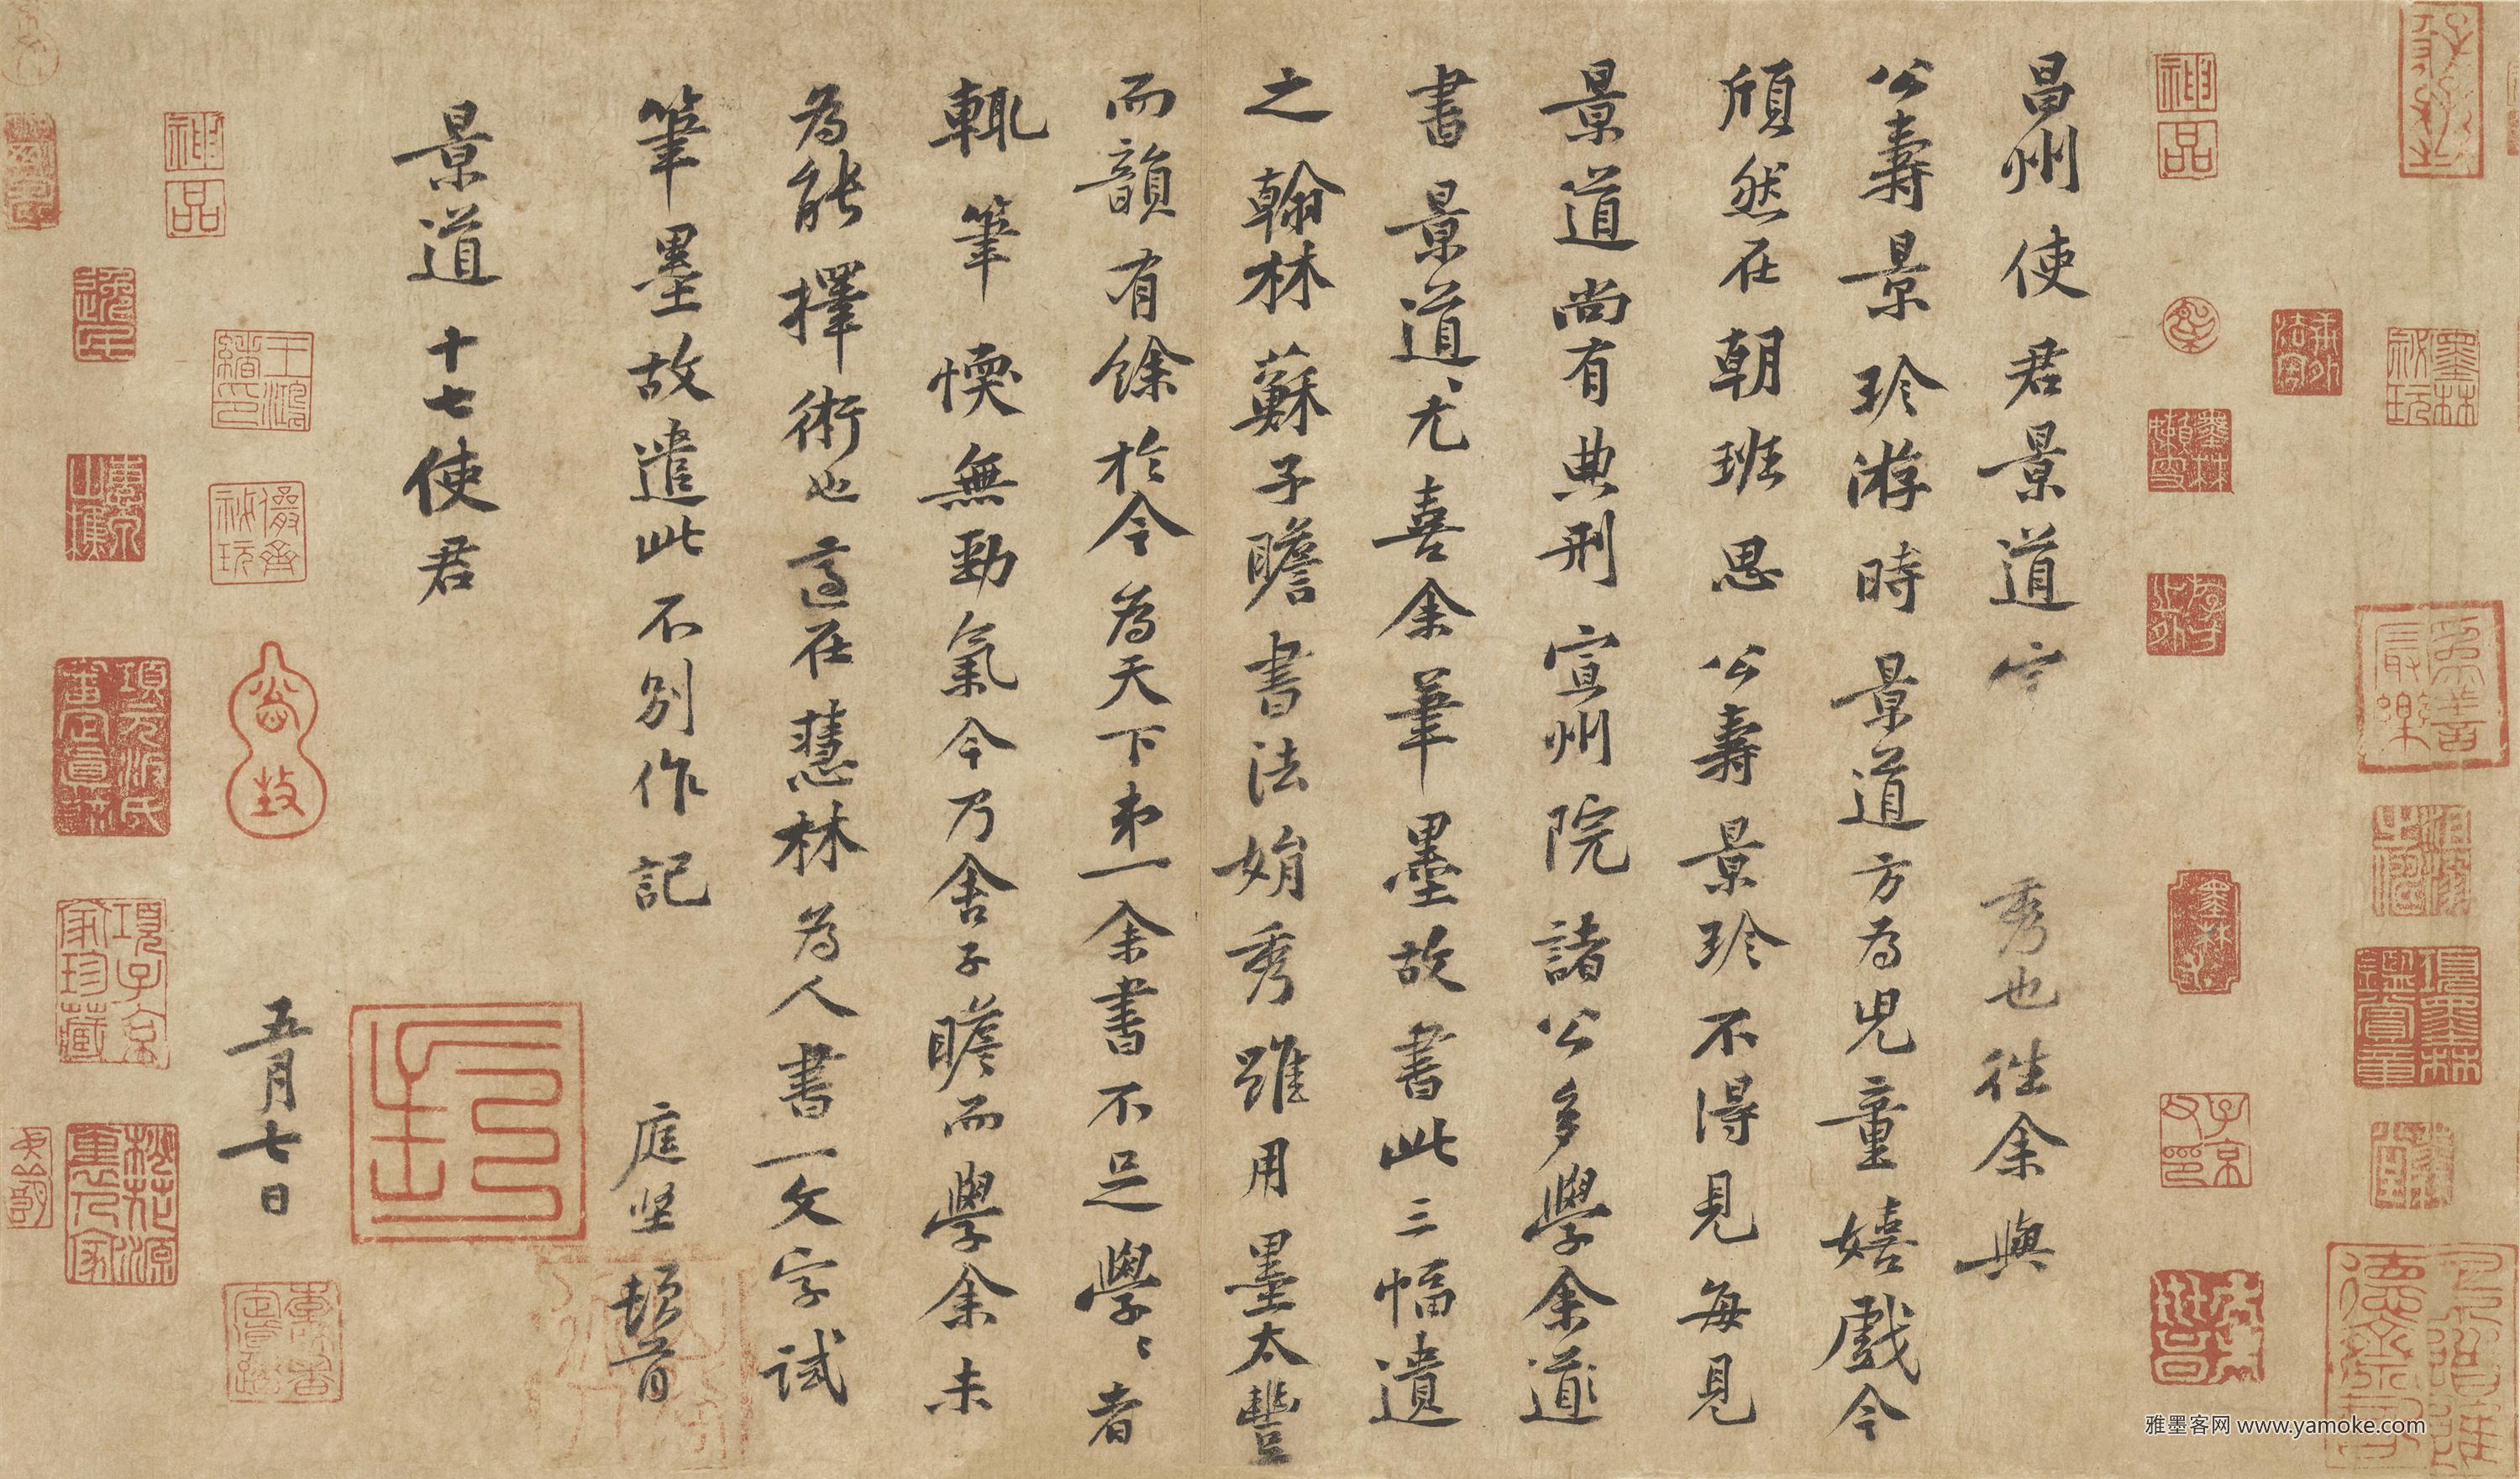 昌州使君景道宗秀也往余與
公壽景珍游時景道方為兒童嬉戲今
頎然在朝班思公壽景珍不得見每見
景道尚有典刑宣州院諸公多學余道
書景道尤喜余筆墨故書此三幅遺
之翰林蘇子瞻書法娟秀雖用墨太豐
而韻有餘於今為天下第一余書不足學學者
輒筆愞無勁氣今乃舍子瞻而學余未
為能擇術也適在慧林為人書一文字試
筆墨故遣此不別作記
庭堅頓首
景道十七使君
五月七日
神品
神品
墨林祕玩
子京父印
項子京家珍藏
項元汴氏審定真跡
雅墨客网 www.yamoke.com